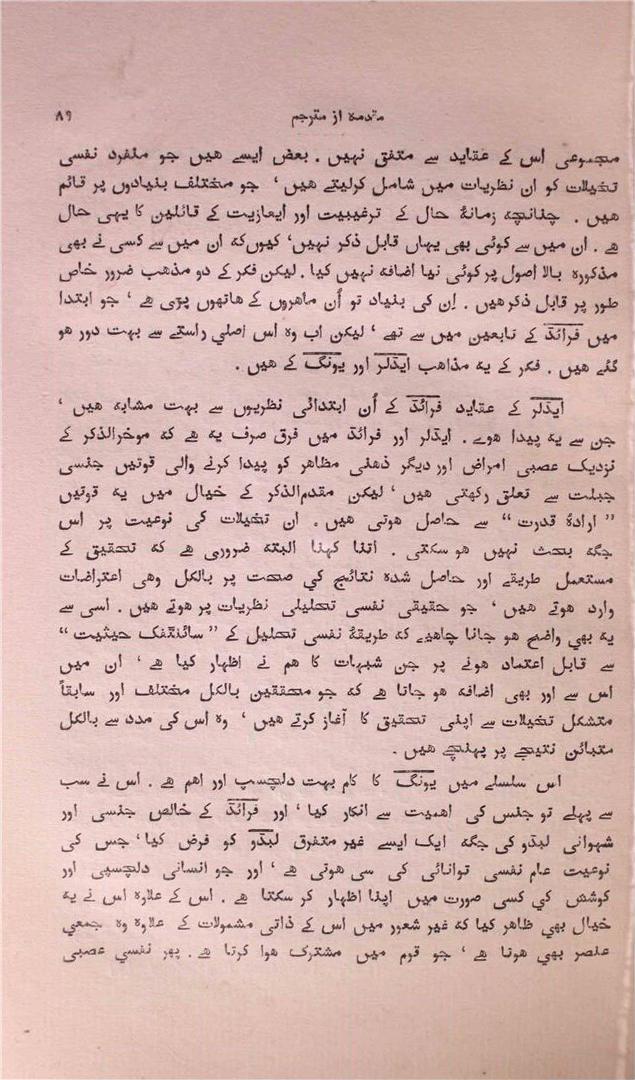 مقدمه از مترجم ۸۹
مجموعی اس کے عقاید سے متفق نہیں . بعض ایسے هیں جو منفرد نفسی
تخیلات کو ان نظریات میں شامل کرلیتے هیں ' جو مختلف بنیادوں پر قائم
هیں . چنانچه زمانۂ حال کے ترغیبیت اور ایعازیت کے قائلین کا یہی حال
هے . ان میں سے کوئی بھی یہاں قابل ذکر نہیں' کیوں که ان میں سے کسی نے بھی
مذکورہ بالا اصول پر کوئی نیا اضافه نہیں کیا . لیکن فکر کے دو مذهب ضرور خاص
طور پر قابل ذکر هیں . اِن کی بنیاد تو اُن ماهروں کے هاتھوں پڑی هے ' جو ابتدا
میں فرائڈ کے تابعین میں سے تھے ' لیکن اب وہ اس اصلی راستے سے بہت دور هو
گئے هیں . فکر کے یه مذاهب ایڈلر اور یونگ کے هیں .
ایڈلر کے عقاید فرائڈ کے اُن ابتدائی نظریوں سے بہت مشابه هیں '
جن سے یه پیدا هوے . ایڈلر اور فرائڈ میں فرق صرف یه هے که موخرالذکر کے
نزدیک عصبی امراض اور دیگر ذهنی مظاهر کو پیدا کرنے والی قوتیں جنسی
جبلت سے تعلق رکھتی هیں ' لیکن مقدم الذکر کے خیال میں یه قوتیں
” ارادۂ قدرت “ سے حاصل هوتی هیں . ان تخیلات کی نوعیت پر اس
جگه بحث نہیں هو سکتی . اتنا کہنا البته ضروری هے که تحقیق کے
مستعمل طریقے اور حاصل شده نتائج کي صحت پر بالکل وهی اعتراضات
وارد هوتے هیں ' جو حقیقی نفسی تحلیلی نظریات پر هوتے هیں . اسی سے
یه بھی واضح هو جانا چاهیے که طریقۂ نفسی تحلیل کے ” سائنٹفک حیثیت “
سے قابل اعتماد هونے پر جن شبہات کا هم نے اظهار کیا هے ' ان میں
اس سے اور بھی اضافه هو جاتا هے که جو محققین بالکل مختلف اور سابقاً
متشکل تخیلات سے اپنی تحقیق کا آغاز کرتے هیں ' وه اس کی مدد سے بالکل
متبائن نتیجے پر پہنچے هیں .
اس سلسلے میں یونگ کا کام بہت دلچسپ اور اهم هے . اس نے سب
سے پہلے تو جنس کی اهمیت سے انکار کیا ' اور فرائڈ کے خالص جنسی اور
شہوانی لبڈو کی جگه ایک ایسے غیر متفرق لبڈو کو فرض کیا ' جس کی
نوعیت عام نفسی توانائی کی سی هوتی هے ' اور جو انسانی دلچسپی اور
کوشش کي کسی صورت میں اپنا اظهار کر سکتا هے . اس کے علاوه اس نے یه
خیال بھی ظاهر کیا که غیر شعور میں اس کے ذاتی مشمولات کے علاوه وه جمعي
عنصر بھي هوتا هے ' جو قوم میں مشترک هوا کرتا هے . پھر نفسي عصبی